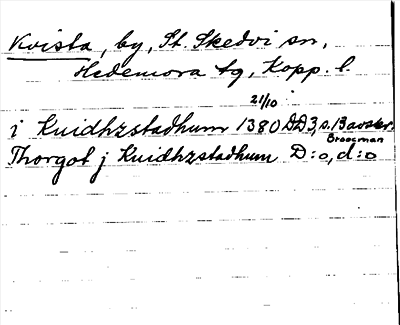 Kvista, by, St. Skedvi sn,
Hedemora tg, Kopp. l.
21/10
i Knidhzstadhum 1380 DD3, s.13 avskr.
Broocman
Thorgot j Knidhzstadhum D:o, d:o